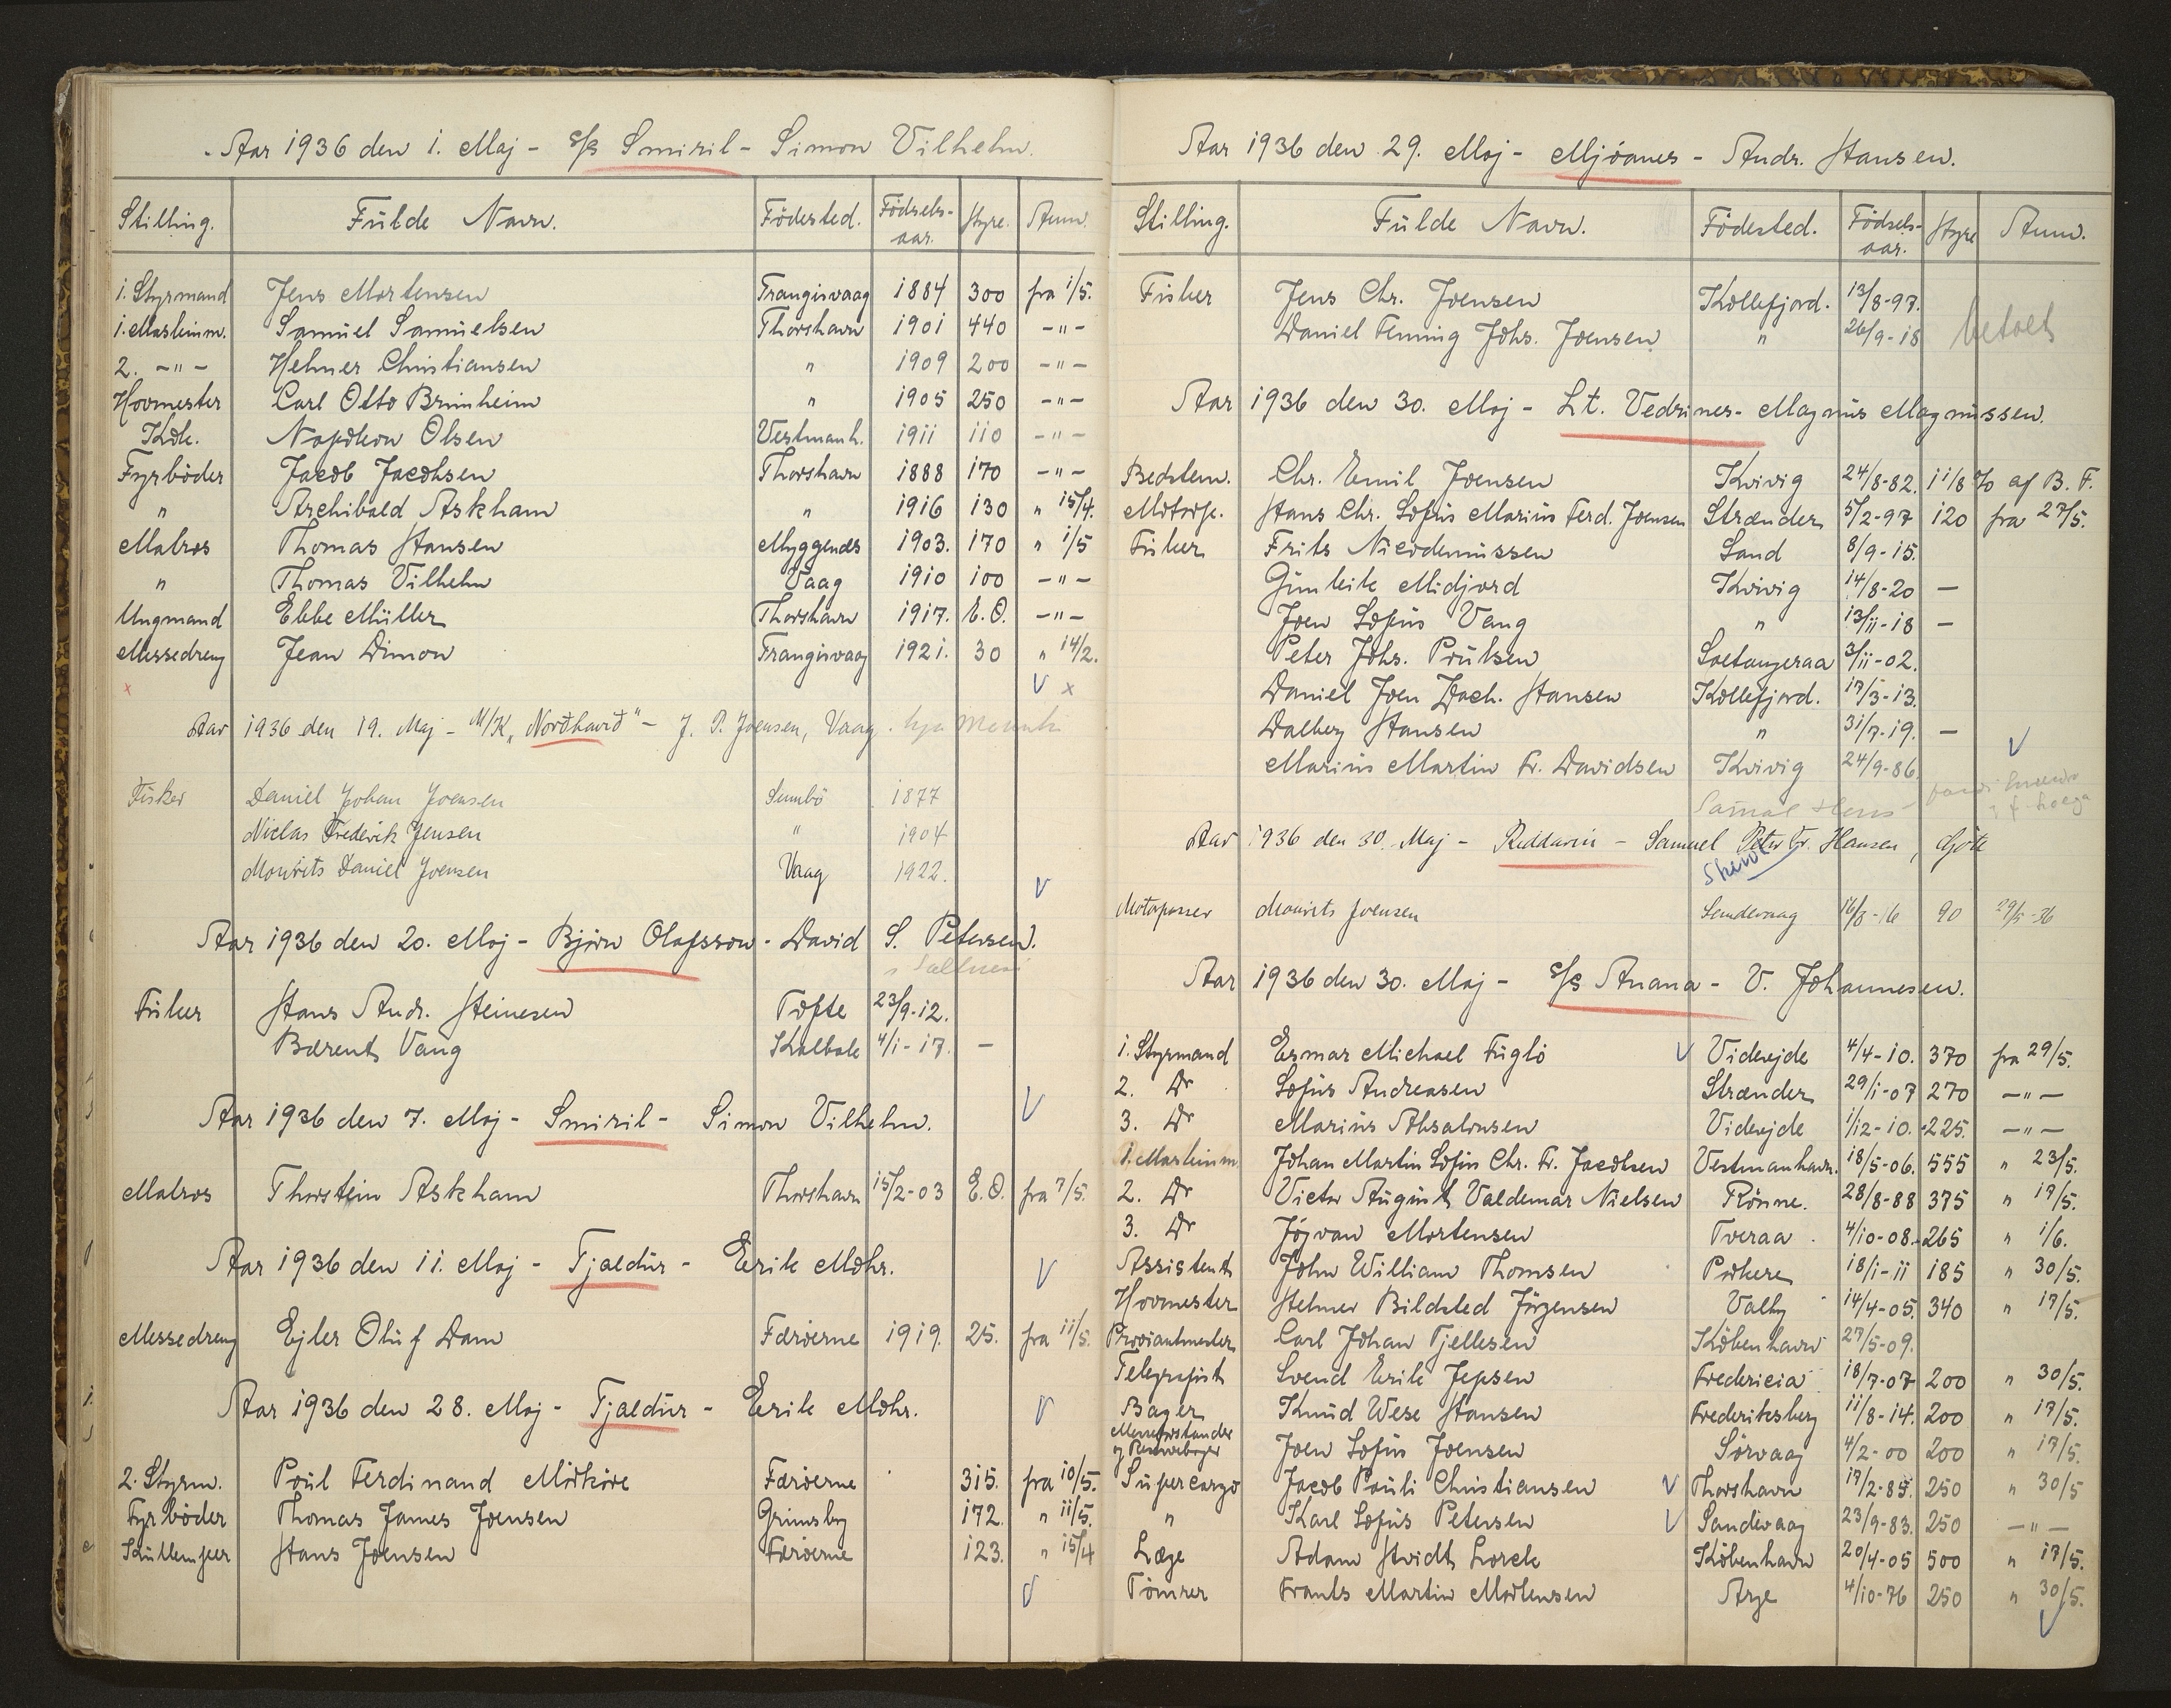 Aar 1936 den 1. Maj - s/s Smiril - Simon Vilhelm.
Stilling. Fulde Navn. Födested. Födsels-aar. Hyre. Anm.
1. Styrmand Jens Mortensen Trangisvaag 1884 300 fra 1/5.
1. Maskinm. Samuel Samuelsen Thorshavn 1901 440 -"-
2. -"- Helmer Christiansen " 1909 200 -"-
Hovmester Carl Otto Brimheim " 1905 250 -"-
Kok. Napoleon Olsen Vestmanh. 1911 110 -"-
Fyrböder Jacob Jacobsen Thorshavn 1888 170 -"-
" Archibald Askham " 1916 130 " 15/4.
Matros Thomas Hansen Myggenæs 1903. 170 " 1/5
" Thomas Vilhelm Vaag 1910 100 -"-
Ungmand Ebbe Müller Thorshavn 1917. E.O. -"-
Messedreng Jean Dimon Trangisvaag 1921. 30 " 14/2.
x
Aar 1936 den 19. Maj - M/K "Nordhavid" - J. P. Joensen, Vaag.
Fisker Daniel Johan Joensen Sumbö 1877
Niclas Frederik Jensen " 1904
Mourits Daniel Joensen Vaag 1922.
Aar 1936 den 20. Maj - Björn Olafsson - David S. Petersen.
Fisker Hans Andr. Heinesen Tofte 23/9-12.
Bærent Vang Kalbak 4/1-17. -
Aar 1936 den 7. Maj - Smiril - Simon Vilhelm.
Matros Thorstein Askham Thorshavn 15/2-03 E.O. fra 7/5.
Aar 1936 den 11. Maj - Tjaldur - Erik Mohr.
Messedreng Ejler Oluf Dam Færöerne 1919. 25. fra 11/5.
Aar 1936 den 28. Maj - Tjaldur - Erik Mohr.
2. Styrm. Poul Ferdinand Mörköre Færöerne 315. fra 10/5.
Fyrböder Thomas James Joensen Grimsby 172. " 11/5.
Kullemper Hans Joensen Færöerne 123. " 15/4
Aar 1936 den 29. Maj - Mjóanes - Andr. Hansen.
Stilling. Fulde Navn. Födested. Födsels-aar. Hyre Anm.
Fisker Jens Chr. Joensen Kollefjord. 13/8-97.
Daniel Fleming Johs. Joensen " 26/9-18 betalt
Aar 1936 den 30. Maj - Lt. Vedrines - Magnus Magnussen.
Bedstem. Chr. Emil Joensen Kvivig 24/8-82. 11/8 % af B. F.
Motorp. Hans Chr. Sofus Marius Ferd. Joensen Strænder 5/2-97 120 fra 27/5.
Fisker Frits Nicodemussen Sand 8/9-15.
Gunleik Midjord Kvivig 14/8-20 -
Joen Sofus Vang " 13/11-18 -
Peter Johs. Poulsen Saltangeraa 3/11-02.
Daniel Joen Zach. Hansen Kollefjord. 17/3-13.
Dalberg Hansen " 31/7-19. -
Marius Martin Fr. Davidsen Kvivig 24/9-86.
Aar 1936 den 30. Maj - Riddarin - Samuel Peter Fr. Hansen, Gjöte
Motorpasser Mourits Joensen Sandevaag 16/3-16 90 29/5-36
Aar 1936 den 30. Maj - s/s Anana - V. Johannesen.
1. Styrmand Esmar Michael Fuglö Viderejde 4/4-10. 370 fra 29/5.
2. Do Sofus Andreasen Strænder 29/1-07 270 -"-
3. Do Marius Absalonsen Viderejde 1/12-10. 225. -"-
1. Maskinm. Johan Martin Sofus Chr. Fr. Jacobsen Vestmanhavn. 18/5-06. 555 " 23/5.
2. Do Victor August Valdemar Nielsen Rönne. 28/8-88 375 " 17/5.
3. Do Jógvan Mortensen Tveraa 4/10-08. 265 " 1/6.
Assistent John William Thomsen Porkere 18/1-11 185 " 30/5.
Hovmester Helmer Bildsted Jörgensen Valby 14/4-05. 340 " 17/5.
Proviantmester Carl Johan Tjellesen Köbenhavn 27/5-09.
Telegrafist Svend Erik Jepsen Fredericia 18/7-07 200 " 30/5.
Bager Knud Wese Hansen Frederiksberg 11/8-14. 200 " 17/5.
Joen Sofus Joensen Sörvaag 4/2-00 200 " 17/5.
Supercargo Jacob Pauli Christiansen Thorshavn 17/2-85. 250 " 30/5
" Karl Sofus Petersen Sandevaag 23/9-83. 250 -"-
Læge Adam Hvidt Lorck Köbenhavn 20/4-05 500 " 17/5.
Tömrer Frants Martin Mortensen Arge 4/10-76 250 " 30/5.